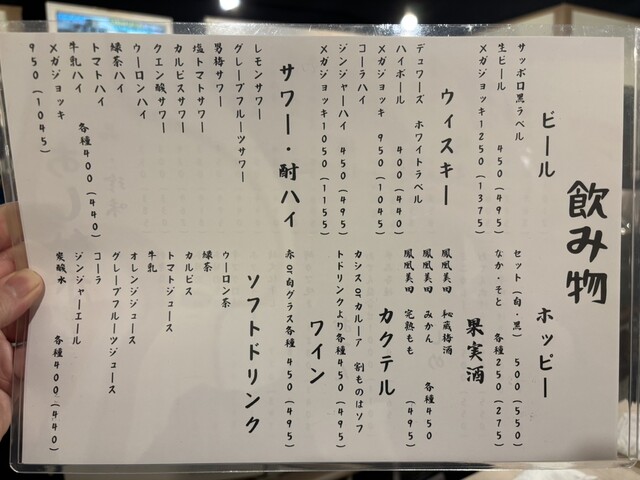 飲み物
ビール
サッポロ黒ラベル
生ビール 450(495)
メガジョッキ1250(1375)
ウィスキー
デュワーズ ホワイトラベル
ハイボール 400(440)
メガジョッキ 950(1045)
コーラハイ
ジンジャーハイ 450(495)
メガジョッキ1050(1155)
サワー・酎ハイ
レモンサワー
グレープフルーツサワー
男梅サワー
塩トマトサワー
カルピスサワー
クエン酸サワー
ウーロンハイ
緑茶ハイ
トマトハイ
牛乳ハイ 各種400(440)
メガジョッキ
950(1045)
ホッピー
セット(白・黒) 500(550)
なか・そと 各種250(275)
果実酒
鳳凰美田 秘蔵梅酒
鳳凰美田 みかん 各種450
鳳凰美田 完熟もも (495)
カクテル
カシスorカルーア 割ものはソフ
トドリンクより各種450(495)
ワイン
赤or白グラス各種 450(495)
ソフトドリンク
ウーロン茶
緑茶
カルピス
トマトジュース
牛乳
オレンジジュース
グレープフルーツジュース
コーラ
ジンジャーエール
炭酸水 各種400(440)